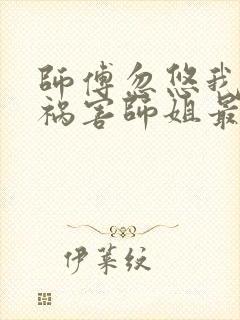 師傅忽悠我
祸害師姐最
伊莱纹